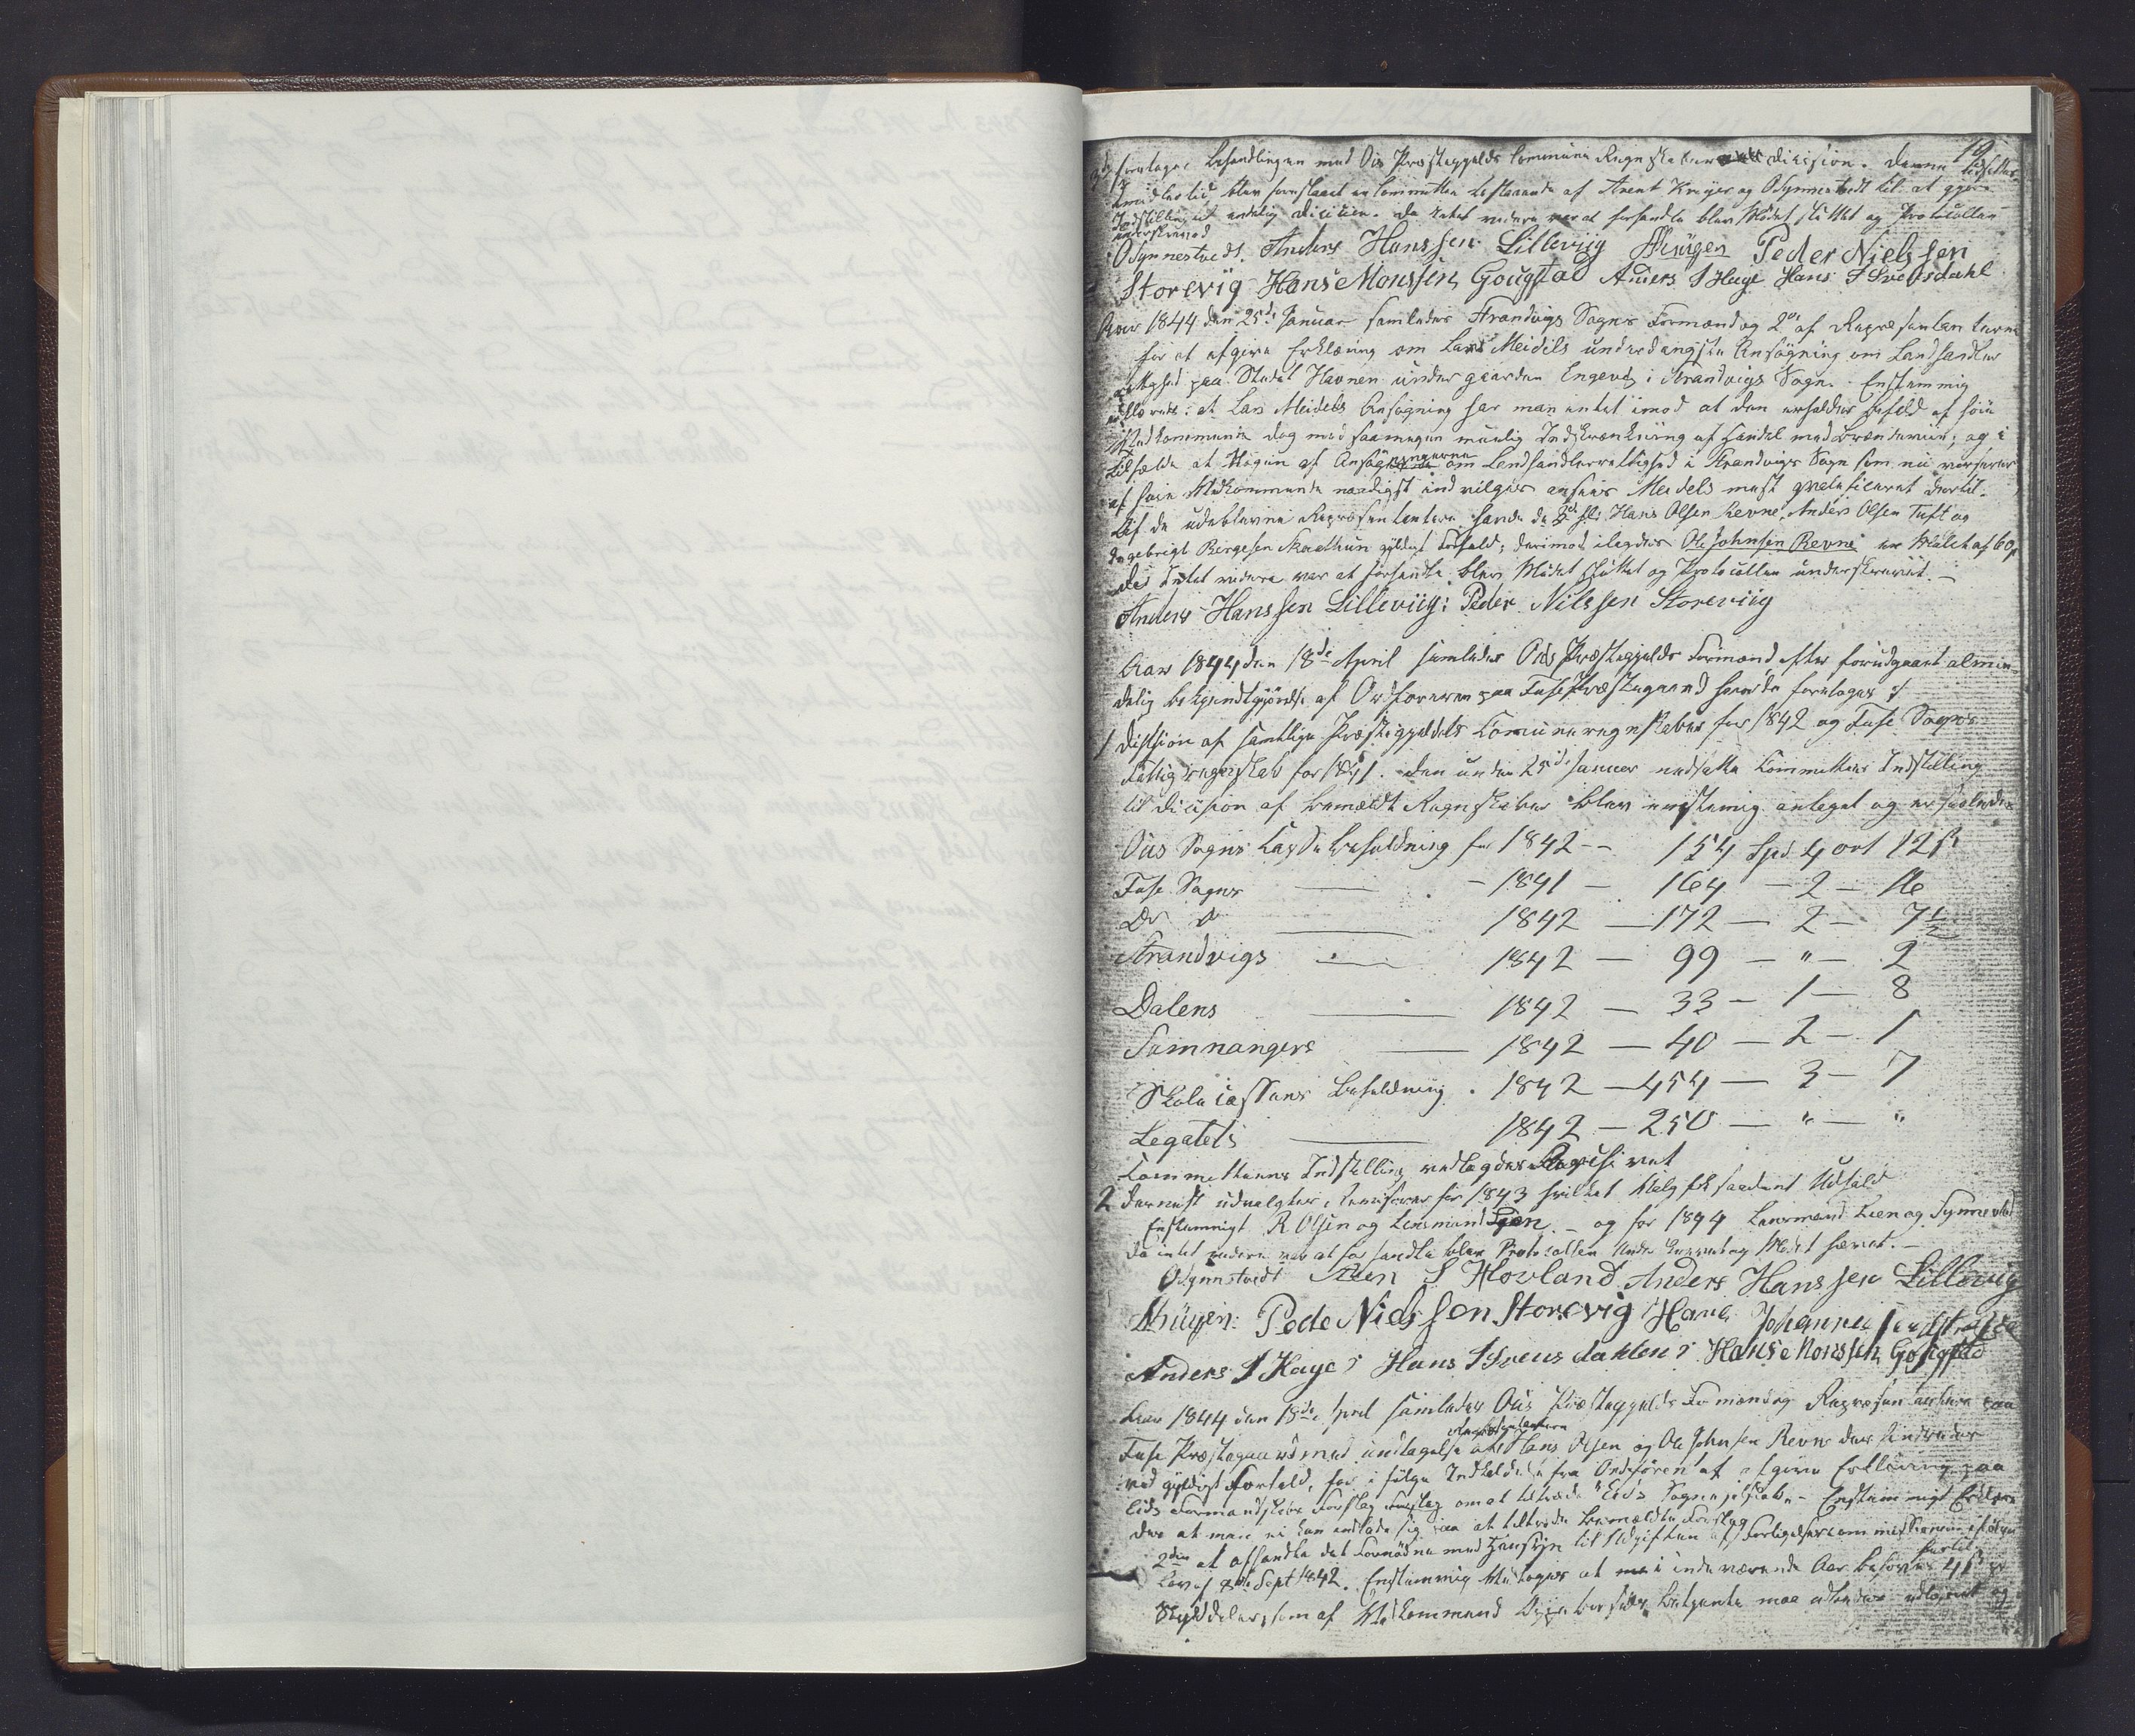 19
3die foretages Behandlingen med Ous Præstegjelds Commune Regnskaber decision. Denne udsattes
imidlertid, blev foreslaaet en Committee bestaaende af Arent Krüger og O Synnestvedt til at gjøre
Indstilling til endelig Decision. Da intet videre var at forhandle blev Mødet sluttet og Protocollen
underskrevet
O Synnestvedt. Anders Hanssen Lilleviig AKrüger Peder Nielssen
Storevig Hans Monssen Gougstad Anders S Hage Hans S Svendsdahl
Aar 1844 den 25de Januar samledes Strandvigs Sogns Formænd og 2de af Repræsentanterne
for at afgive Erklæring om Lars Meidels underdanigste Ansøgning om Landhandler
rettighed paa Stedet Havnen under gaarden Engevig i Strandvigs Sogn. Enstemmig
erklærede: at Lars Meidels Ansøgning har man intet imod at den erholder Bifald af høie
Vedkommende dog med saamegen muelig Indskrænkning af Handel med Brændeviin, og i
Tilfælde at Nogen af Ansøgningerne om Landhandlerrettighed i Strandvigs Sogn som nu
af høie Vedkommende naadigst indvilges ansees Meidels mest qvalificeret dertil.
Af de udeblevne Repræsentantere havde de Hans Olsen Revne, Anders Olsen Tuft og
Ingebrigt Børgesen Skaathun gyldigt Forfald; derimod ilegdes Ole Johnsen Revne en Mulct af 60 s
Da Intet videre var at forhandle blev Mødet sluttet og Protocollen underskrevet. —
Anders Hanssen Lilleviig: Peder Nilssen Storeviig
Aar 1844 den 18de April samledes Ous Præstegjelds Formænd efter forudgaaet almin-
delig bekjendtgjørelse af Ordføreren paa Fuse Præstegaard hvor da foretoges:
1 Dission af samtlige Præstegjeldets Communeregnskaber for 1842 og Fuse Sogns
Fattigregnskab for 1841. Den under 25de Januar nedsatte Committees Indstilling
til Decision af bemældte Regnskaber blev enstemig antaget og er saaledes
Ous Sogns Casse Beholdning for 1842 -- 154 Spd 4 ort 12 s
Fuse Sogns — - 1841 - 164 - 2 - 16
Do Do — 1842 — 172 — 2 — 7½
Strandvigs — 1842 — 99 — " — 2
Dalens — 1842 — 33 — 1 — 8
Samnangers — 1842 — 40 — 2 — 1
Skole Cassens Beholdning . 1842 — 454 — 3 — 7
Legatets — 1842 — 250 — " — "
Committeens Indstilling vedlagdes Archivet
2 Dernæst udvalgtes Revisorer for 1843 hvilket Valg fik saadant Udfald
Enstemmigt R. Olsen og Lensmand Lien — og for 1844 Lensmand Lien og Synnestvedt
Da intet videre var at forhandle blev Protocollen underskrevet og Mødet hævet. —
O Synnestvedt Sten S Hovland Anders Hanssen Lillevig
AKrüger: Pede Nielssen Storevig Hans Johannes
Anders S Hage Hans S Svensdahlen Hans Monssen Gougstad
Aar 1844 den 18de April samledes Ous Præstegjelds Formænd og Repræsentantere paa
Fuse Præstegaard med undtagelse af Repræsentanterne Hans Olsen og Ole Johnsen Revne der hindredes
ved gyldigt Forfald, for i følge Indkaldelse fra Ordføren at afgive Erklæring paa
Eids Formandskabs Forslag om at tiltræde "Eids Sogneselskab" - Enstemmigt Erklære
des at man ei kan indlade sig paa at tiltræde bemældte Forslag
2den at afhandle det Fornødne med Hensyn til Udgiften af Forligelsescommissionen ifølge
Lov af Sept 1842. Enstemmig vedtoges at i indeværende Aar hertil behøves 4 s pr
Skylddaler, som af Vedkommende betjente maa udlagt og